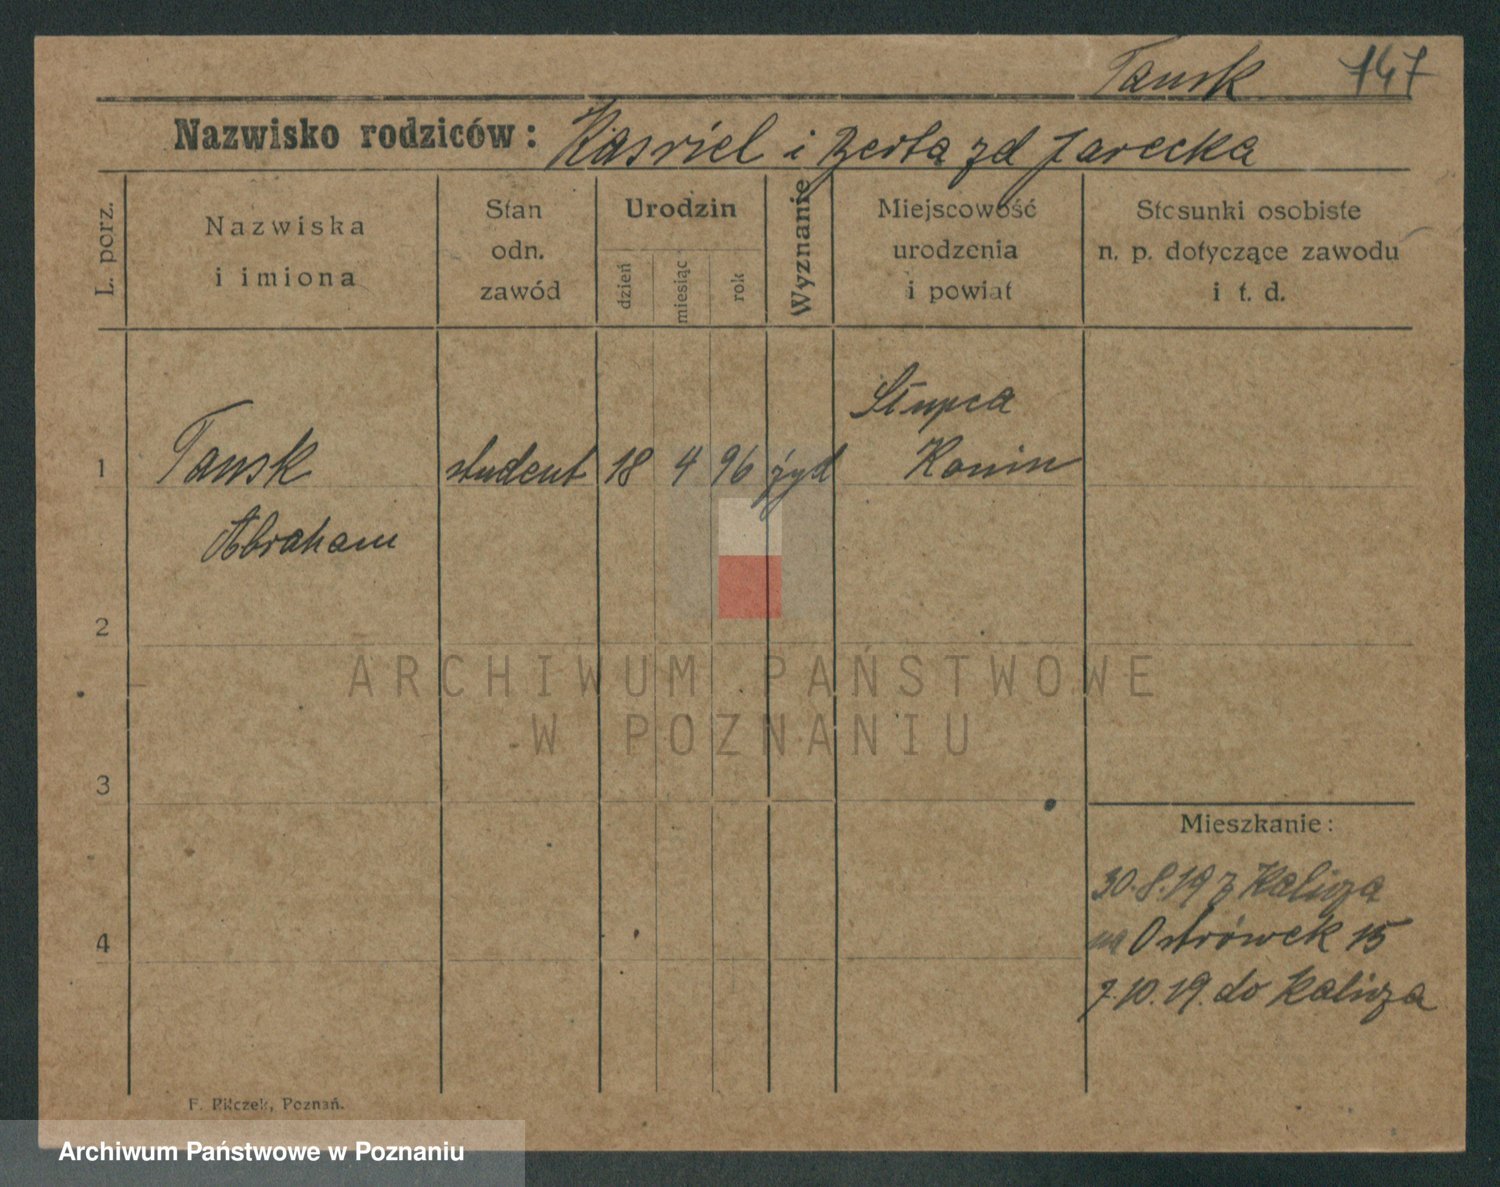 Tansk 147
Nazwisko rodziców: Kasriel i Berta zd Jarecka
L. porz.
Nazwiska
i imiona
Stan
odn.
zawód
Urodzin
dzień
miesiąc
rok
Wyznanie
Miejscowość
urodzenia
i powiat
Stosunki osobiste
n. p. dotyczące zawodu
i t. d.
1
Tansk
Abraham
student
18
4
96
żyd
Słupca
Konin
2
3
4
ARCHIWUM PAŃSTWOWE
W POZNANIU
Mieszkanie:
30.8.19 z Kalisza
na Ostrówek 15
7.10.19. do Kalisza
F. Pilczek, Poznań.
Archiwum Państwowe w Poznaniu